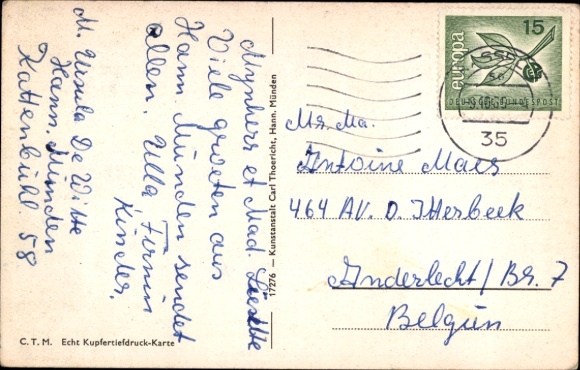 M. Ursula De Witte
Hann. Münden
Kattenbühl 58
Mynherr et Mad.
Viele groeten aus
Hann. Münden sendet
allen. Ulla, Firmin
Kinder.
C.T.M. Echt Kupfertiefdruck-Karte
17276 — Kunstanstalt Carl Thoericht, Hann. Münden
europa
15
DEUTSCHE BUNDESPOST
35
Antoine Maes
464 AV. D. Itterbeek
Anderlecht/Br. 7
Belgiën